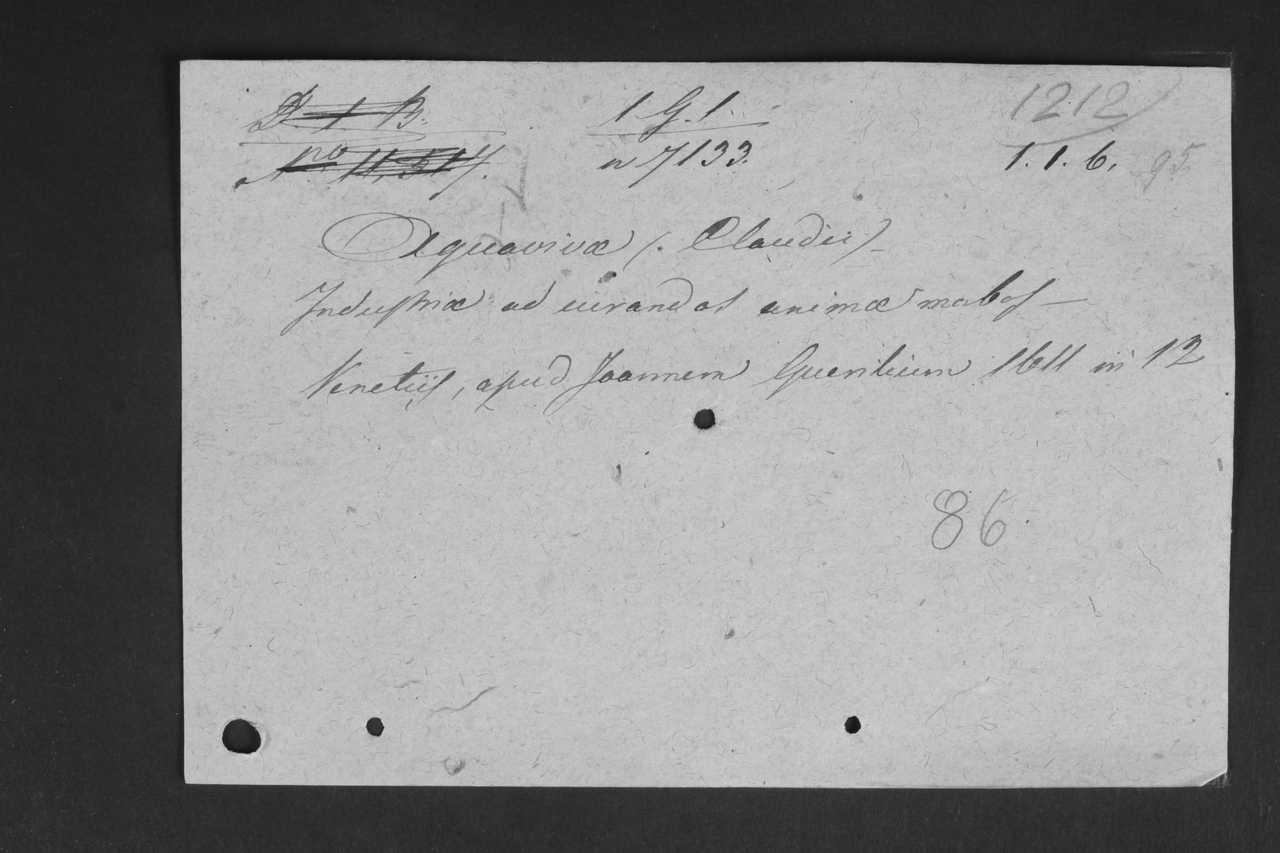 1. G. 1. 1212
n 7133. 1. 1. 6. 95
Aquavivæ (. Claudii)
Industriæ ad curandos animæ mabos —
Venetijs, apud Joannem Guerilium 1611 in 12
86